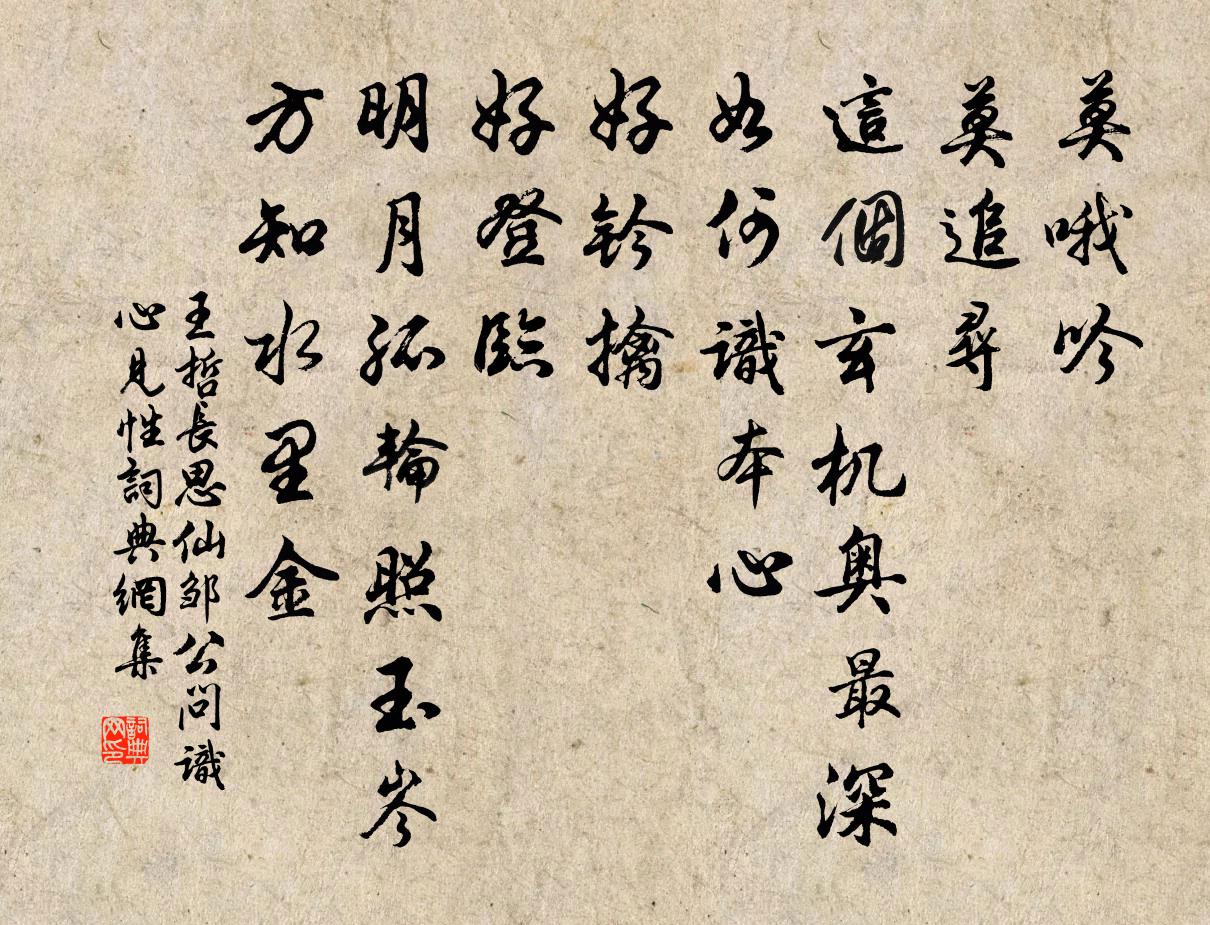 莫哦吟
莫追尋
這個玄机奧最深
如何識本心
好鈐擒
好登臨
明月孤輪照玉岑
方知水里金
王哲長思仙邹公問識
心見性詞典網集
詞典
网印